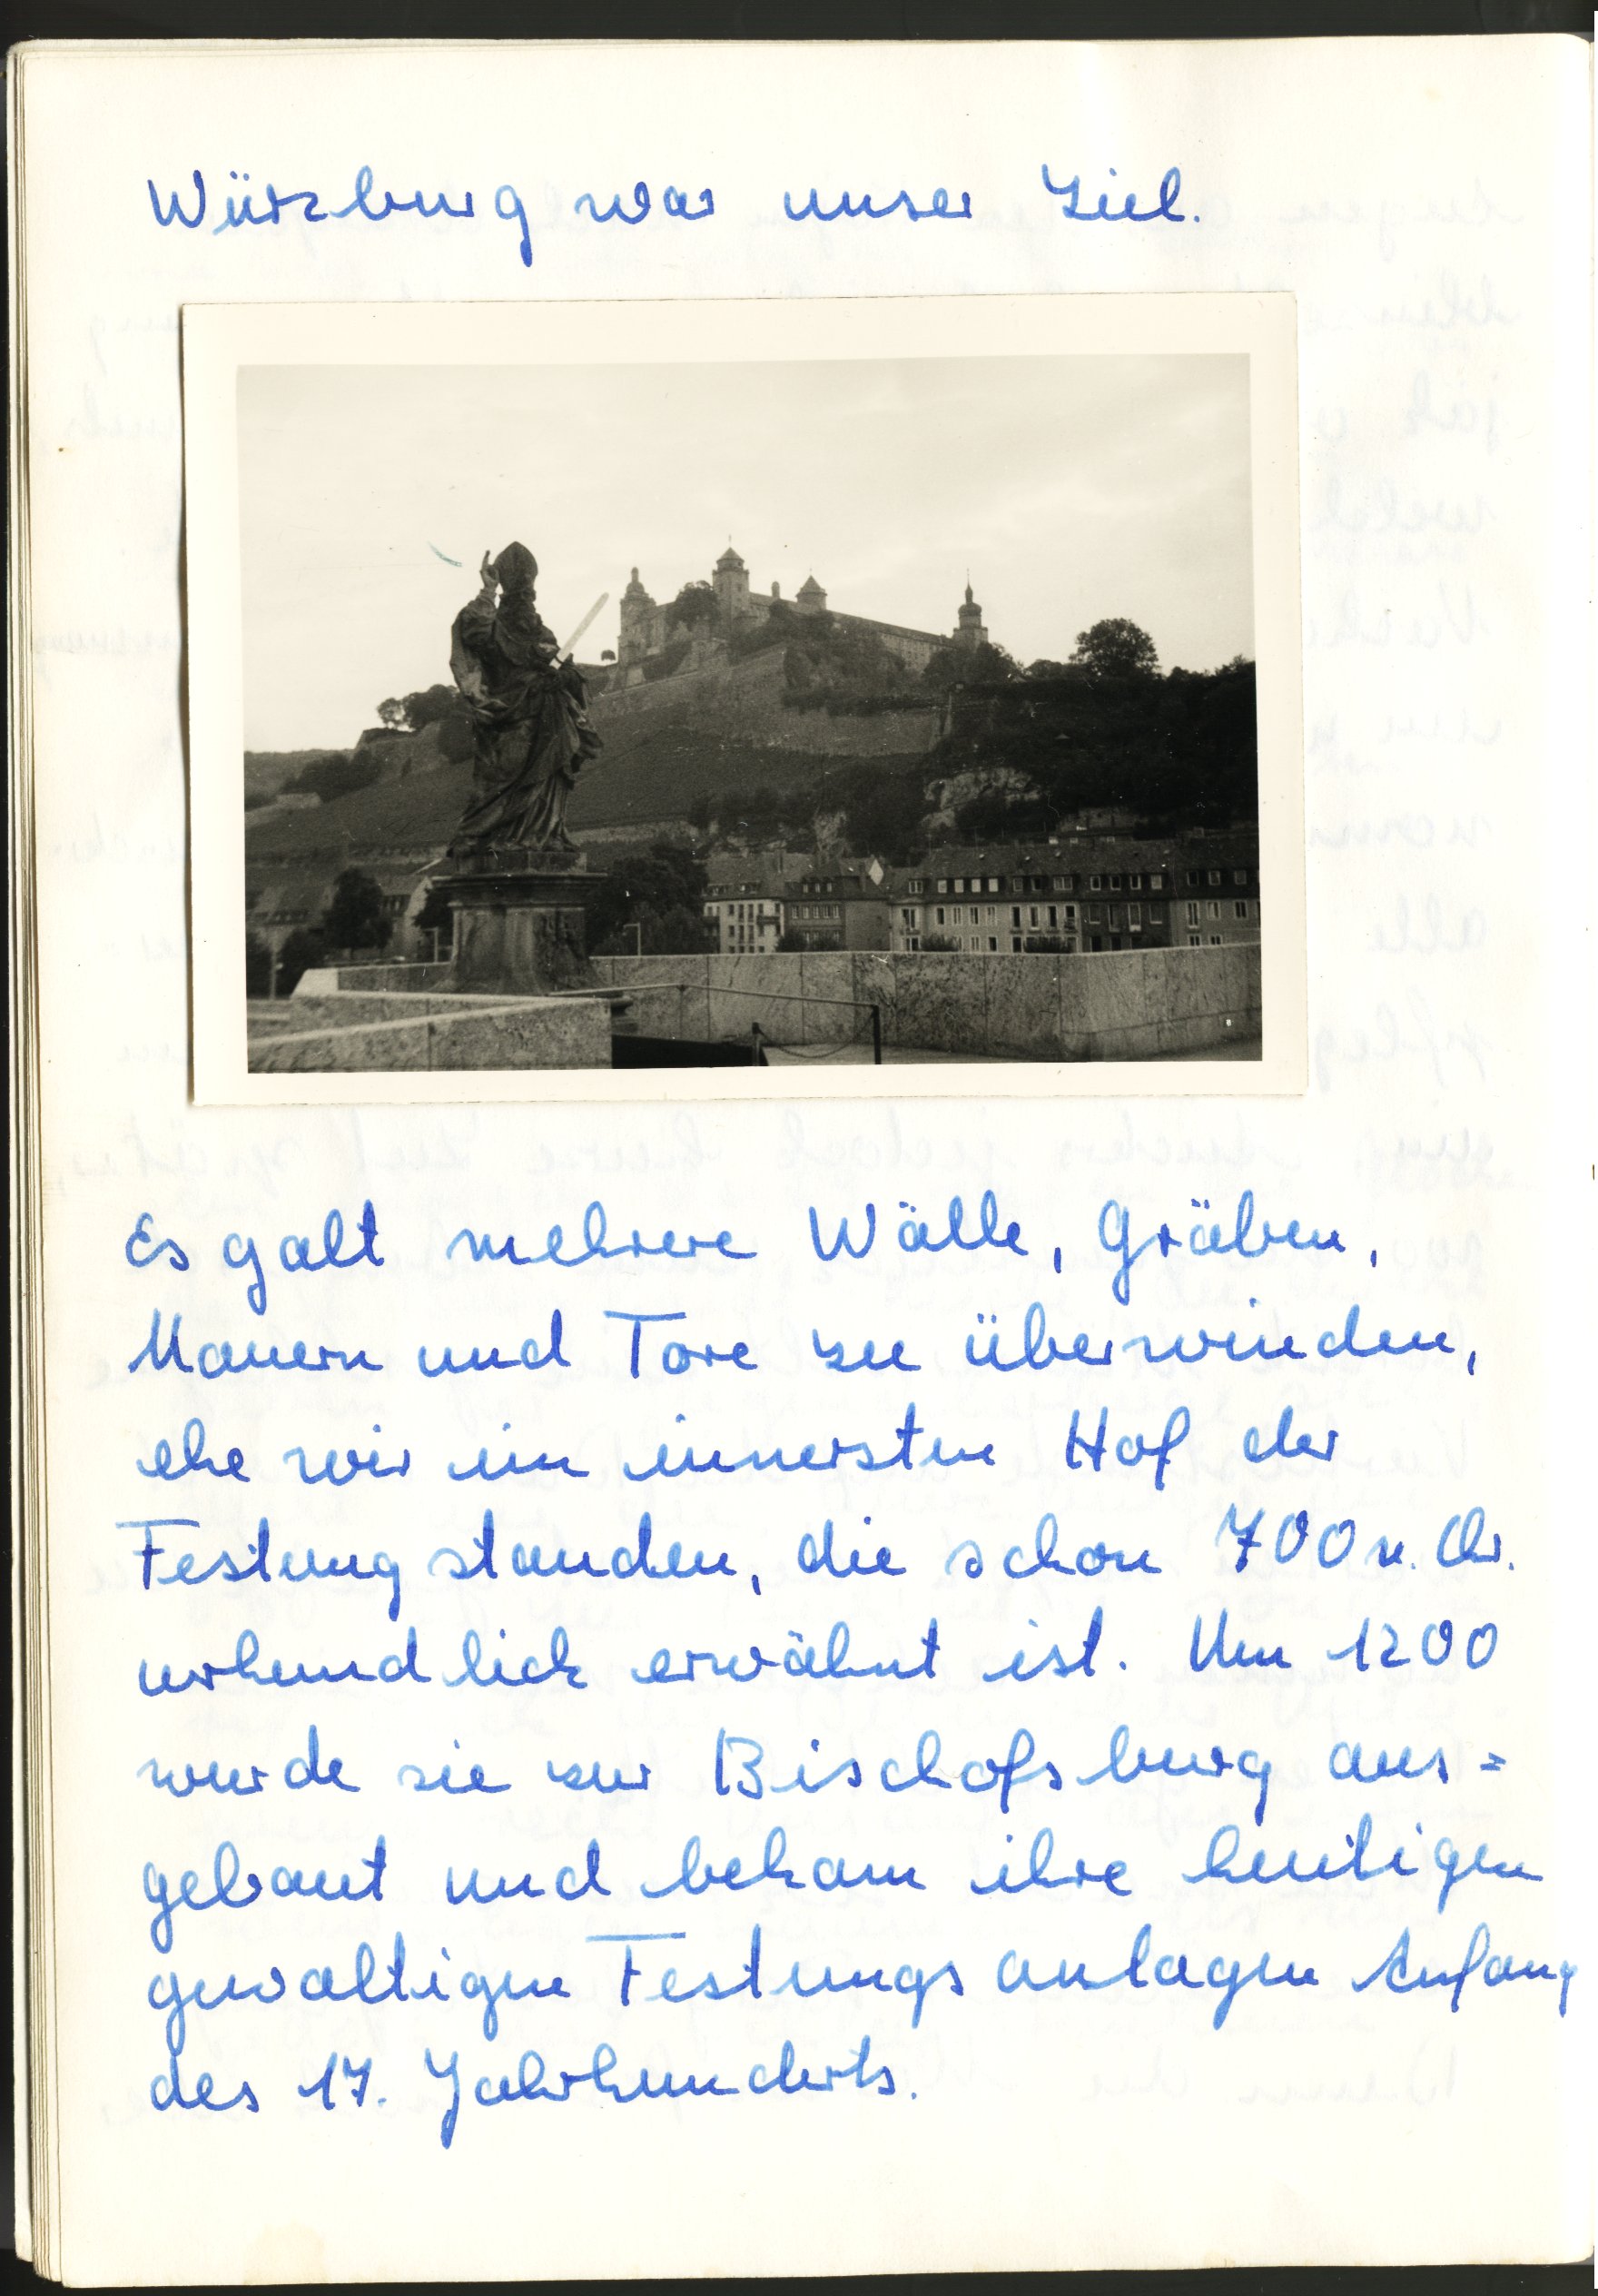 Würzburg war unser Ziel.
Es galt mehrere Wälle, Gräben,
Mauern und Tore zu überwinden,
ehe wir im innersten Hof der
Festung standen, die schon 700 n. Chr.
urkundlich erwähnt ist. Um 1200
wurde sie zur Bischofsburg aus=
gebaut und bekam ihre heutigen
gewaltigen Festungsanlagen Anfang
des 17. Jahrhunderts.